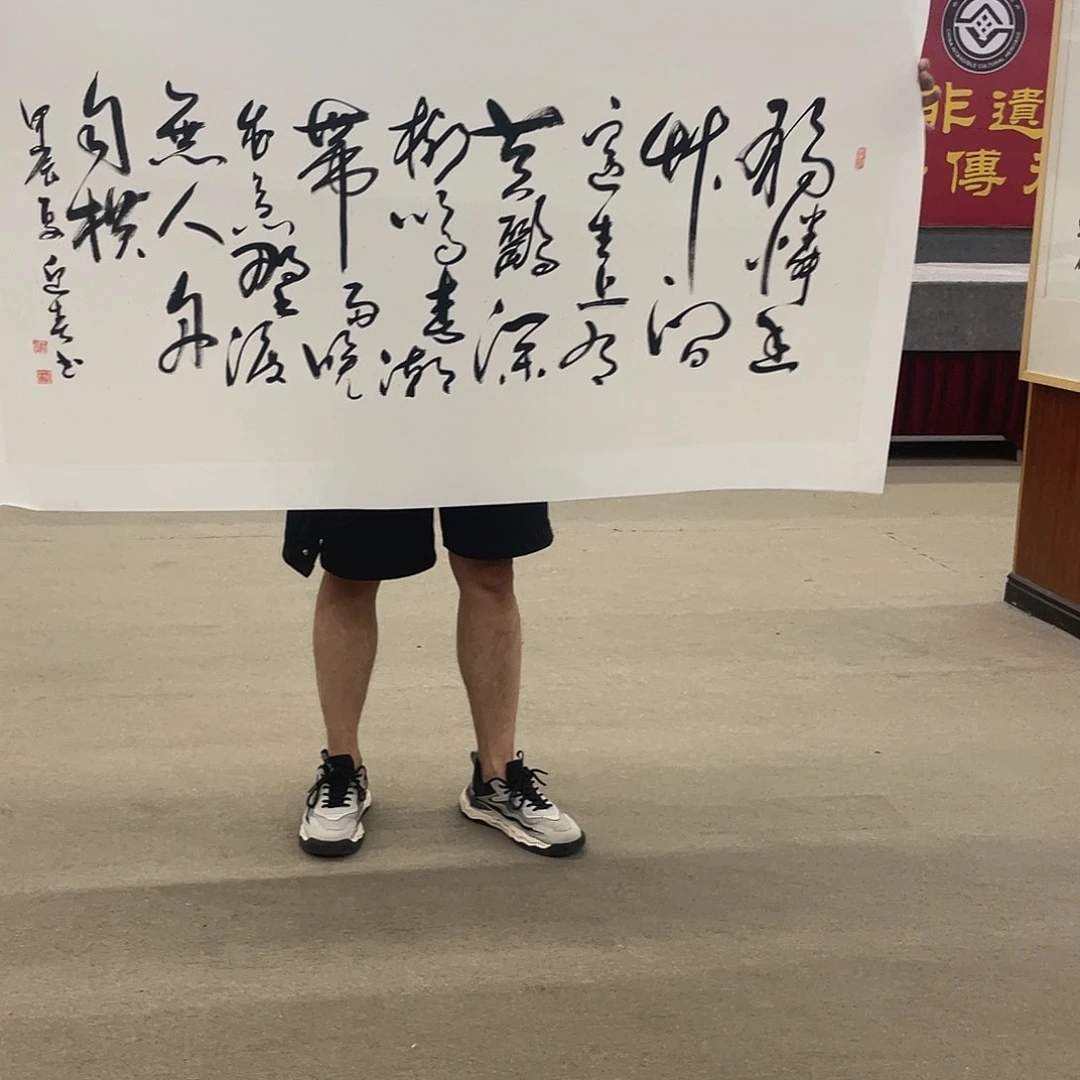 獨憐幽
艸澗
邊生上有
黃鸝深
樹鳴春潮
帶雨晚
來急野渡
無人舟
自橫
甲辰夏迎春书
CHINA INTANGIBLE CULTURAL HERITAGE
非遺
傳